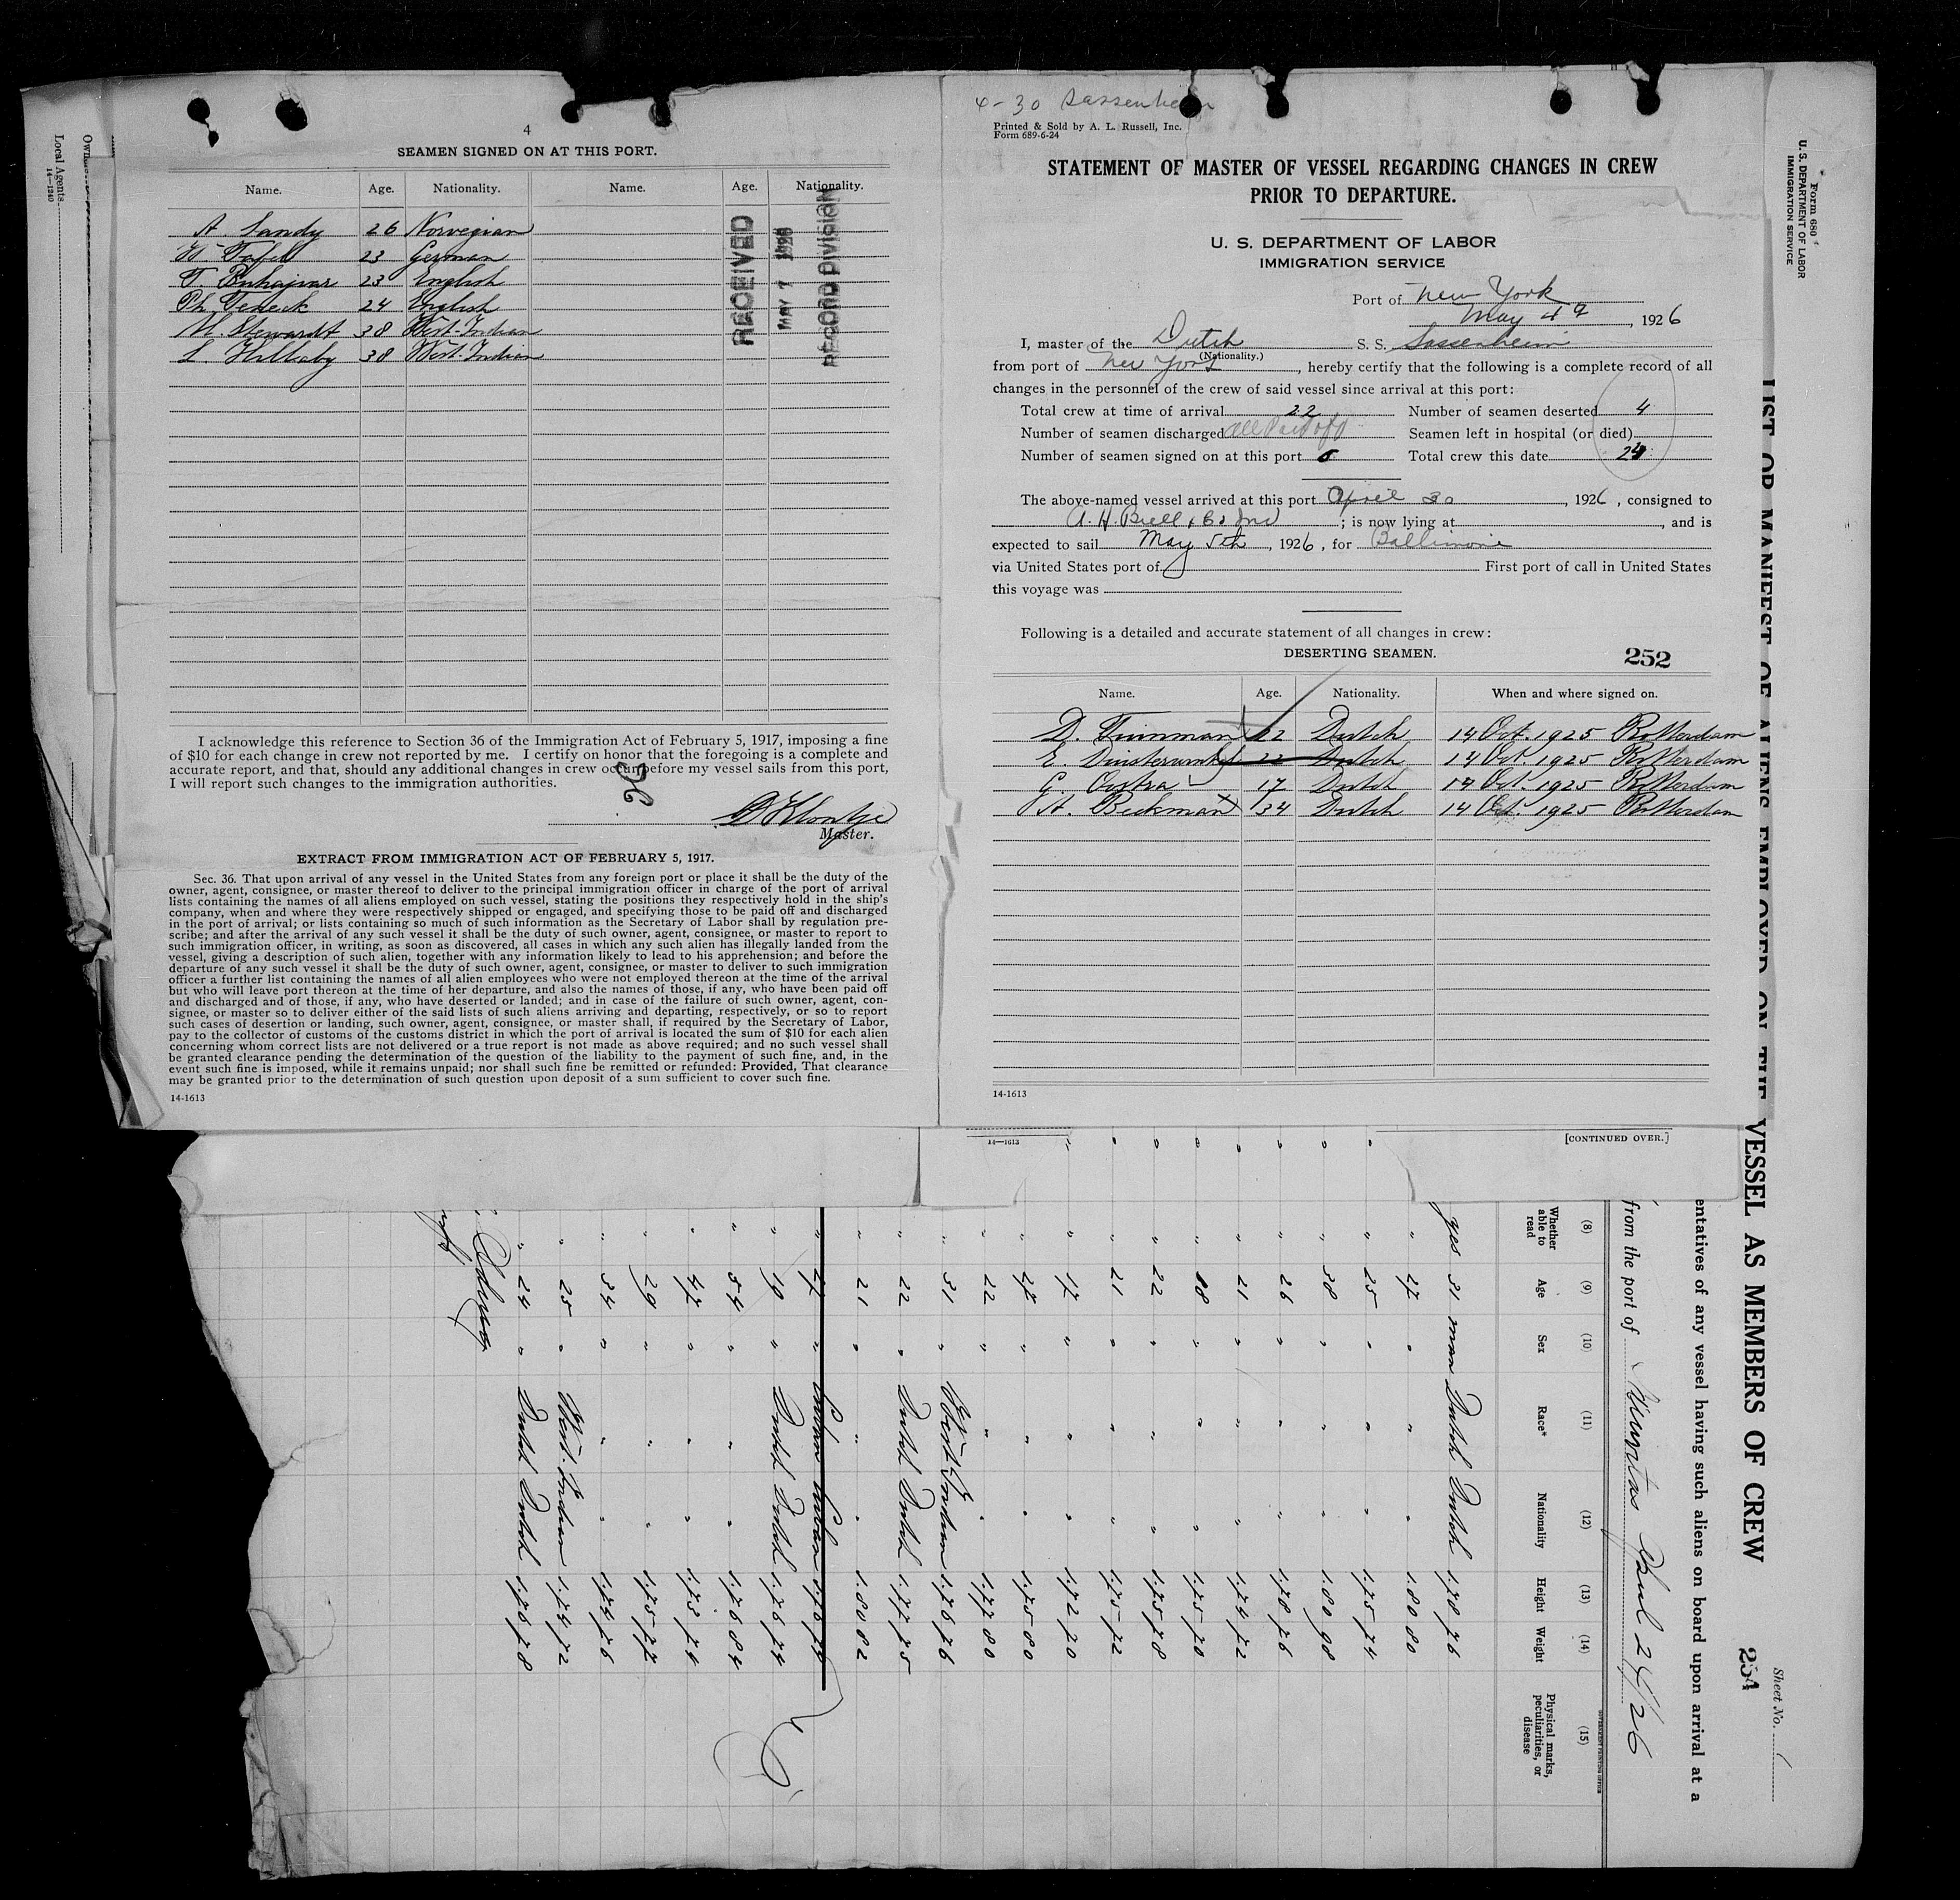 4
SEAMEN SIGNED ON AT THIS PORT.
Name. Age. Nationality. Name. Age. Nationality.
A. Sandy 26 Norwegian
Tafel 23 German
23 English
Ph. 24 English
Stewardt 38 West-Indian
L. 38 West-Indian
RECEIVED
MAY 7 1926
RECORD DIVISION
I acknowledge this reference to Section 36 of the Immigration Act of February 5, 1917, imposing a fine
of $10 for each change in crew not reported by me. I certify on honor that the foregoing is a complete and
accurate report, and that, should any additional changes in crew occur before my vessel sails from this port,
I will report such changes to the immigration authorities.
Master.
EXTRACT FROM IMMIGRATION ACT OF FEBRUARY 5, 1917.
Sec. 36. That upon arrival of any vessel in the United States from any foreign port or place it shall be the duty of the
owner, agent, consignee, or master thereof to deliver to the principal immigration officer in charge of the port of arrival
lists containing the names of all aliens employed on such vessel, stating the positions they respectively hold in the ship's
company, when and where they were respectively shipped or engaged, and specifying those to be paid off and discharged
in the port of arrival; or lists containing so much of such information as the Secretary of Labor shall by regulation pre-
scribe; and after the arrival of any such vessel it shall be the duty of such owner, agent, consignee, or master to report to
such immigration officer, in writing, as soon as discovered, all cases in which any such alien has illegally landed from the
vessel, giving a description of such alien, together with any information likely to lead to his apprehension; and before the
departure of any such vessel it shall be the duty of such owner, agent, consignee, or master to deliver to such immigration
officer a further list containing the names of all alien employees who were not employed thereon at the time of the arrival
but who will leave port thereon at the time of her departure, and also the names of those, if any, who have been paid off
and discharged and of those, if any, who have deserted or landed; and in case of the failure of such owner, agent, con-
signee, or master so to deliver either of the said lists of such aliens arriving and departing, respectively, or so to report
such cases of desertion or landing, such owner, agent, consignee, or master shall, if required by the Secretary of Labor,
pay to the collector of customs of the customs district in which the port of arrival is located the sum of $10 for each alien
concerning whom correct lists are not delivered or a true report is not made as above required; and no such vessel shall
be granted clearance pending the determination of the question of the liability to the payment of such fine, and, in the
event such fine is imposed, while it remains unpaid; nor shall such fine be remitted or refunded: Provided, That clearance
may be granted prior to the determination of such question upon deposit of a sum sufficient to cover such fine.
14-1613
4-30 Sassenheim
Printed & Sold by A. L. Russell, Inc.
Form 689-6-24
STATEMENT OF MASTER OF VESSEL REGARDING CHANGES IN CREW
PRIOR TO DEPARTURE.
U. S. DEPARTMENT OF LABOR
IMMIGRATION SERVICE
Port of New York
May 4, 1926
I, master of the Dutch S. S. Sassenheim
(Nationality.)
from port of New York, hereby certify that the following is a complete record of all
changes in the personnel of the crew of said vessel since arrival at this port:
Total crew at time of arrival 22 Number of seamen deserted 4
Number of seamen discharged all Paid off Seamen left in hospital (or died)
Number of seamen signed on at this port 6 Total crew this date 24
The above-named vessel arrived at this port April 30, 1926, consigned to
A. H. Bull & Co Inc; is now lying at , and is
expected to sail May 5th, 1926, for Baltimore
via United States port of First port of call in United States
this voyage was
Following is a detailed and accurate statement of all changes in crew:
DESERTING SEAMEN.
252
Name. Age. Nationality. When and where signed on.
D. 22 Dutch 14 Oct. 1925 Rotterdam
E. 22 Dutch 14 Oct. 1925 Rotterdam
17 Dutch 14 Oct. 1925 Rotterdam
A. Beekman 34 Dutch 14 Oct. 1925 Rotterdam
14-1613
14—1613
[CONTINUED OVER.]
Local Agents
14—1240
Form 680
U. S. DEPARTMENT OF LABOR
IMMIGRATION SERVICE
LIST OR MANIFEST OF ALIENS EMPLOYED ON THE VESSEL AS MEMBERS OF CREW
254
Sheet No.
entatives of any vessel having such aliens on board upon arrival at a
from the port of Nuevitas April 24/26
(8) (9) (10) (11) (12) (13) (14) (15)
Whether able to read Age Sex Race* Nationality Height Weight Physical marks, peculiarities, or disease
yes 31 man Dutch Dutch 1.78 76
" 27 " " " 1.80 80
" 25 " " " 1.75 74
" 38 " " " 1.80 98
" 26 " " " 1.78 76
" 21 " " " 1.74 72
" " " " 1.75 70
" 22 " " " 1.75 78
" 21 " " " 1.75 72
" 17 " " " 1.72 70
" 27 " " " 1.75 80
" 22 " " " 1.77 80
" 31 " West Indian 1.76 76
" 22 " Dutch Dutch 1.77 75
" 21 " " " 1.80 82
" 27 " Cuban Cuban 1.76 74
" 19 " Dutch Dutch 1.76 74
" 54 " " " 1.76 84
" 47 " " " 1.73 74
" 29 " " " 1.75 77
" 34 " " " 1.74 76
" 25 " West-Indian 1.74 72
" 24 " Dutch Dutch 1.76 78